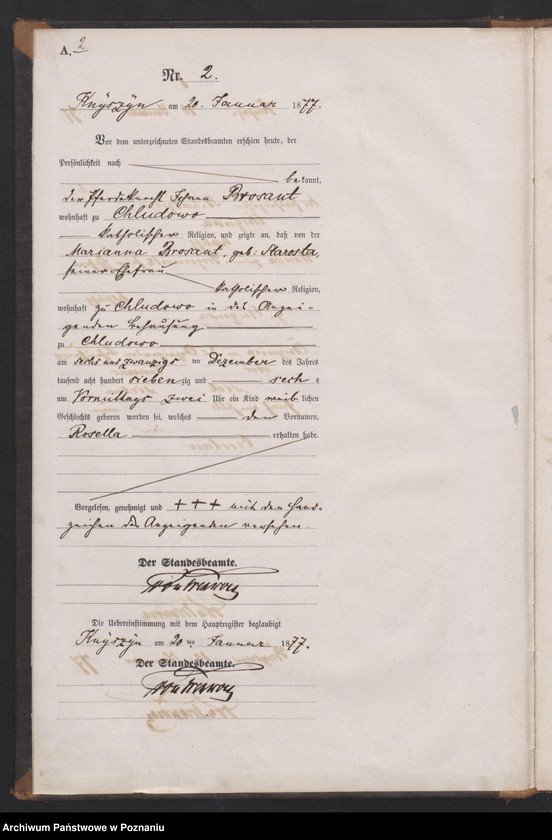 A. 2
Nr. 2.
Knyszyn am 20. Januar 1877.
Vor dem unterzeichneten Standesbeamten erschien heute, der
Persönlichkeit nach
bekannt,
der Pferdeknecht Johann Brosant
wohnhaft zu Chludowo
katholischer Religion, und zeigte an, daß von der
Marianna Brosant, geb: Starosta,
seiner Ehefrau
katholischer Religion,
wohnhaft zu Chludowo in des Anzei-
genden Behausung
zu Chludowo
am sechs und zwanzigs ten Dezember des Jahres
tausend acht hundert siebenzig und sech s
um Vormittags zwei Uhr ein Kind weib lichen
Geschlechts geboren worden sei, welches den Vornamen,
Rosella erhalten habe.
Vorgelesen, genehmigt und +++ mit den Hand-
zeichen des Anzeigenden versehen.
Der Standesbeamte.
Die Uebereinstimmung mit dem Hauptregister beglaubigt
Knyszyn am 20 ten Januar 1877.
Der Standesbeamte.
Archiwum Państwowe w Poznaniu